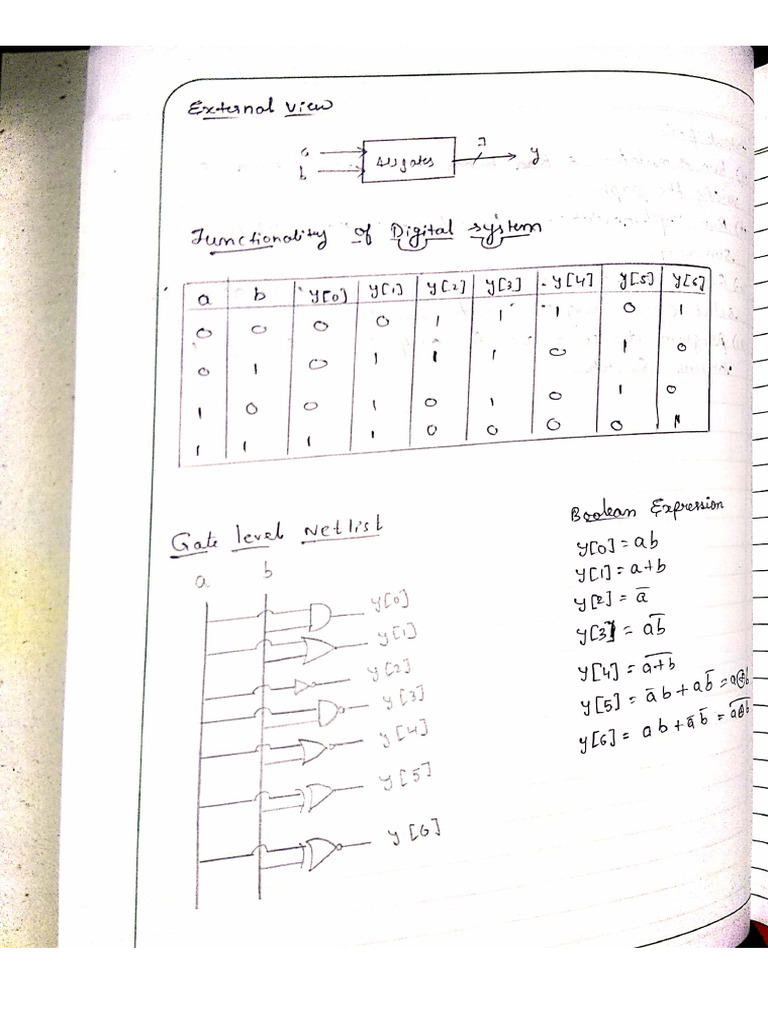 External view
7
a
Allgates
y
b
Functionality of Digital system
a b y[0] y[1] y[2] y[3] y[4] y[5] y[6]
0 0 0 0 1 1 1 0 1
0 1 0 1 1 1 0 1 0
1 0 0 1 0 1 0 1 0
1 1 1 1 0 0 0 0 1
Gate level Netlist
a b
y[0]
y[1]
y[2]
y[3]
y[4]
y[5]
y[6]
Boolean Expression
y[0] = ab
y[1] = a+b
y[2] = a̅
y[3] = a̅b̅
y[4] = a̅+̅b̅
y[5] = a̅b + ab̅ = a⊕b
y[6] = ab + a̅b̅ = a̅⊕̅b̅